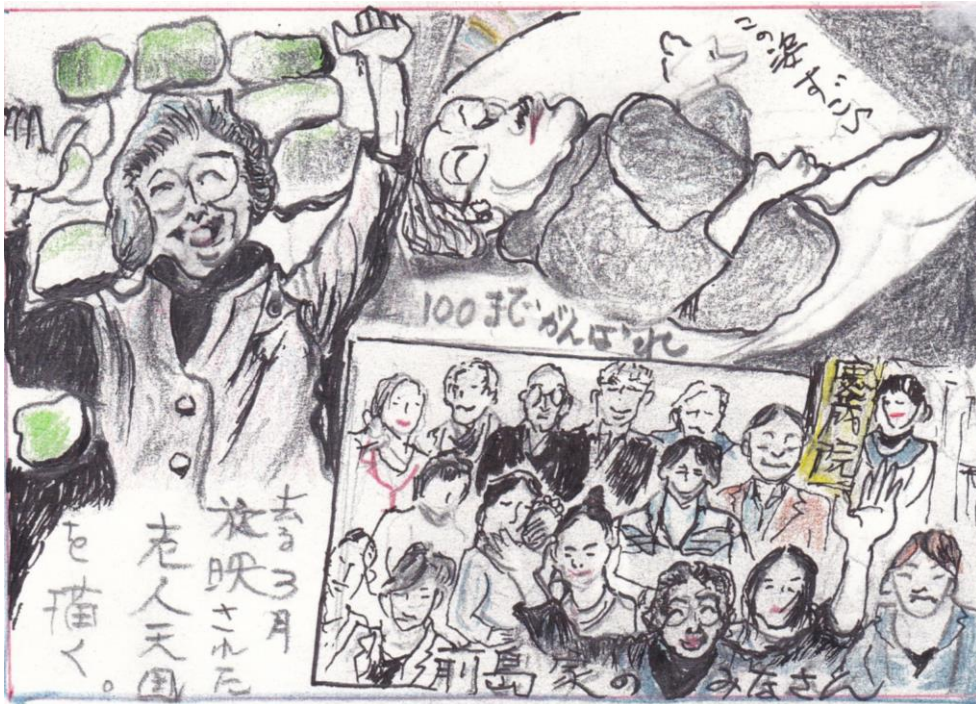 この涙がら
100までがんばれ
医院
去る3月
放映された
老人天国
を描く。
前島家のみなさん